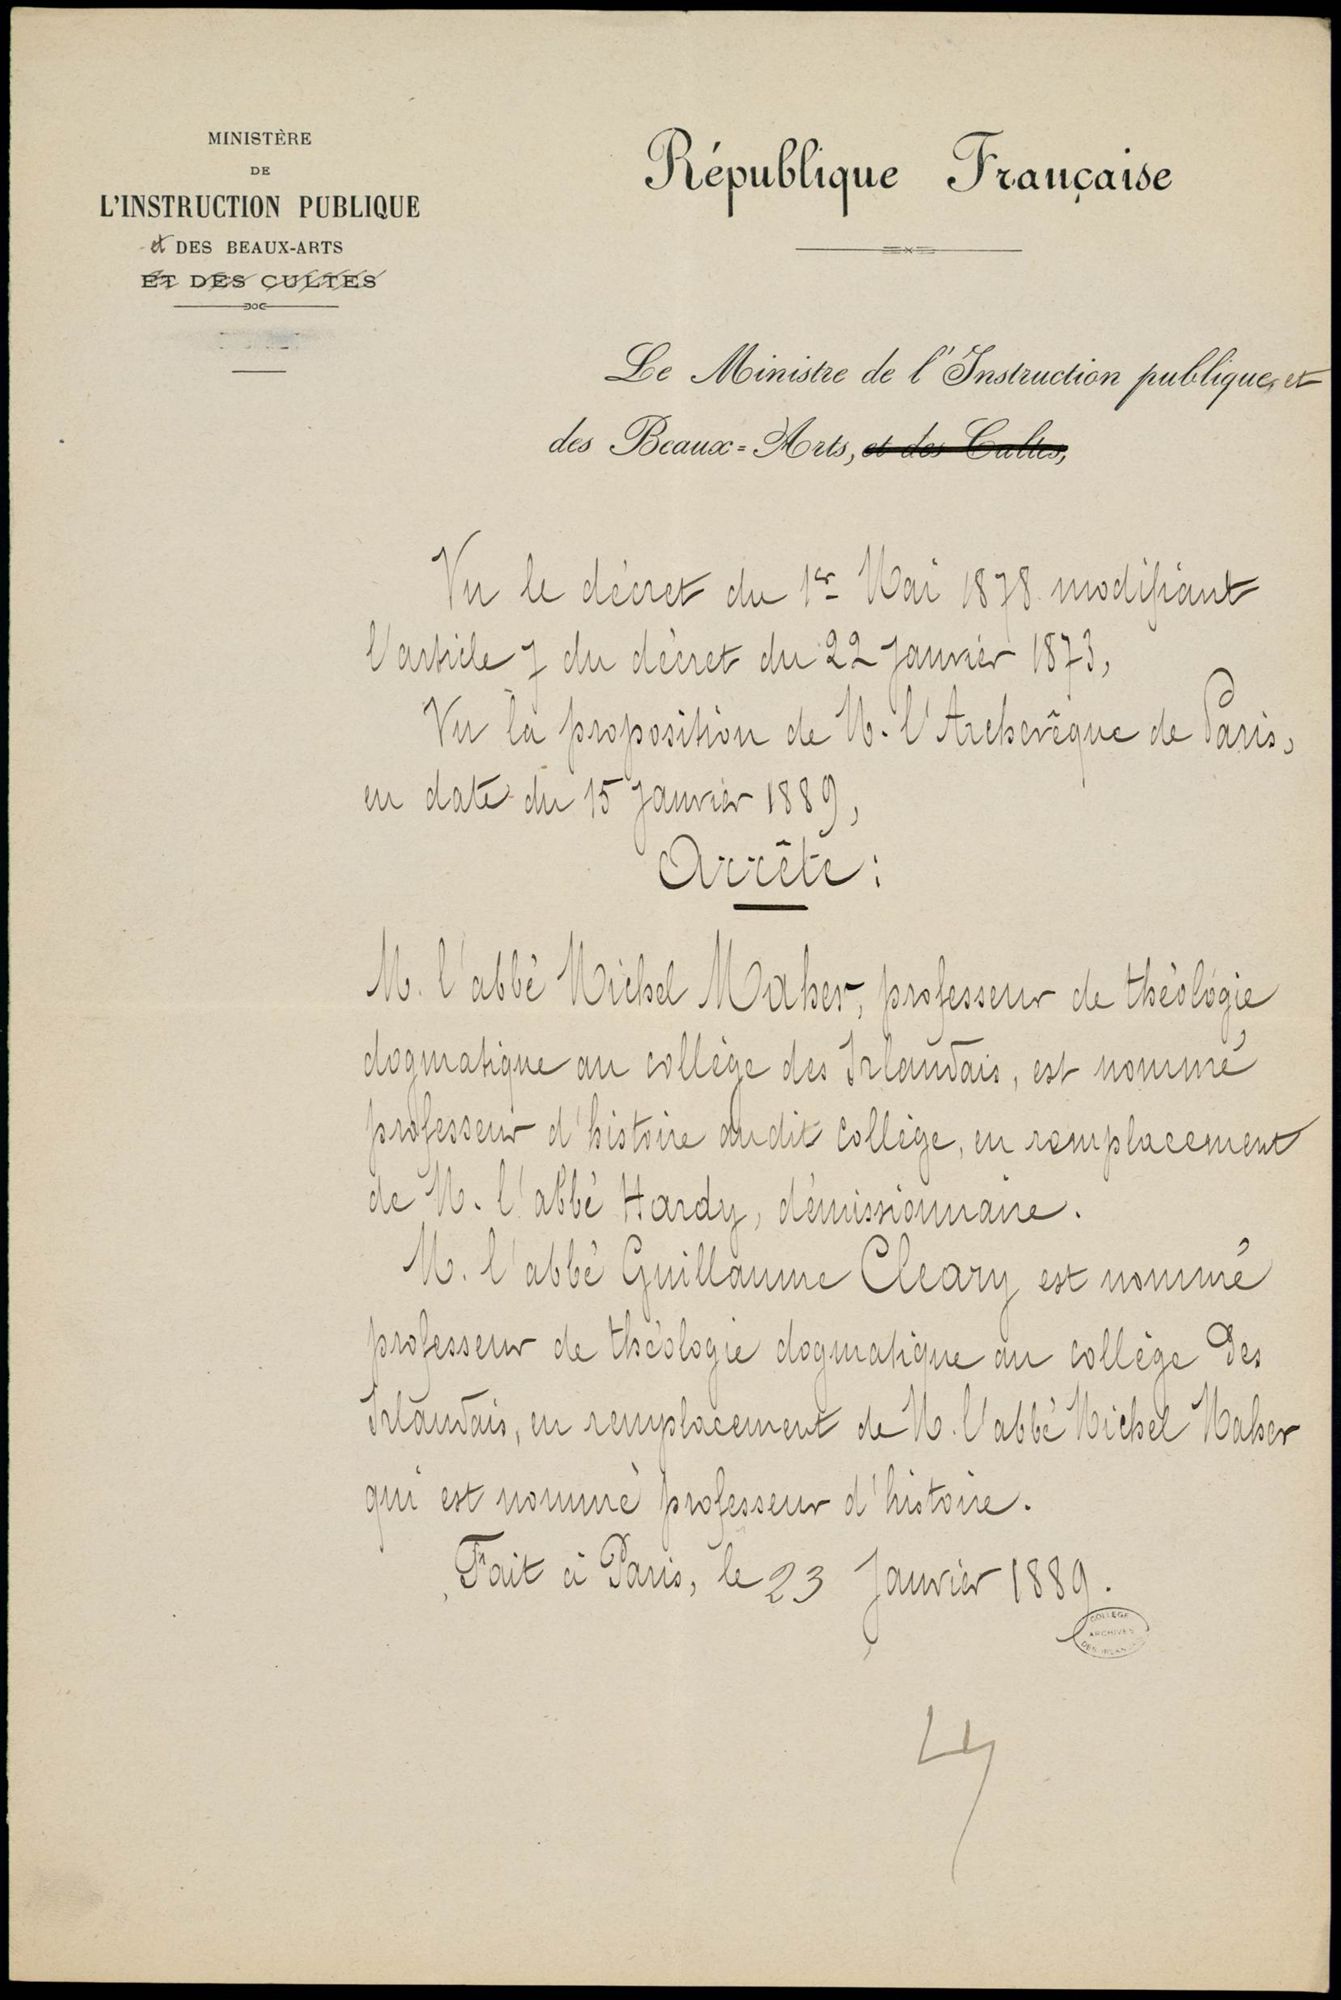 MINISTÈRE
DE
L'INSTRUCTION PUBLIQUE
et DES BEAUX-ARTS
ET DES CULTES
République Française
Le Ministre de l'Instruction publique, et
des Beaux-Arts, et des Cultes,
Vu le décret du 1er Mai 1878 modifiant
l'article 7 du décret du 22 Janvier 1873,
Vu la proposition de M. l'Archevêque de Paris,
en date du 15 Janvier 1889,
Arrête :
M. l'abbé Michel Maher, professeur de théologie
dogmatique au collège des Irlandais, est nommé
professeur d'histoire audit collège, en remplacement
de M. l'abbé Hardy, démissionnaire.
M. l'abbé Guillaume Cleary est nommé
professeur de théologie dogmatique au collège des
Irlandais, en remplacement de M. l'abbé Michel Maher
qui est nommé professeur d'histoire.
Fait à Paris, le 23 Janvier 1889.
COLLEGE
ARCHIVES